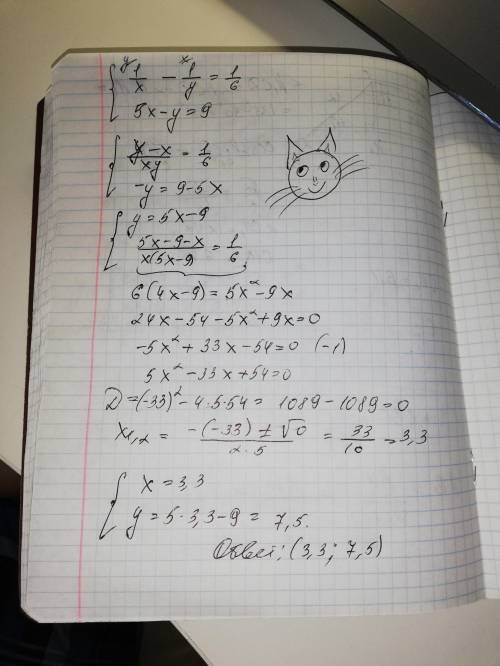 { y 1/x - x 1/y = 1/6
5x-y=9
{ (y-x)/(xy) = 1/6
-y=9-5x
{ y=5x-9
(5x-9-x)/(x(5x-9)) = 1/6
6(4x-9)=5x²-9x
24x-54-5x²+9x=0
-5x²+33x-54=0 (-1)
5x²-33x+54=0
D=(-33)²-4·5·54= 1089-1089=0
x₁,₂ = (-(-33)±√0)/(2·5) = 33/10 =3,3
{ x=3,3
y=5·3,3-9= 7,5.
Ответ: (3,3; 7,5)